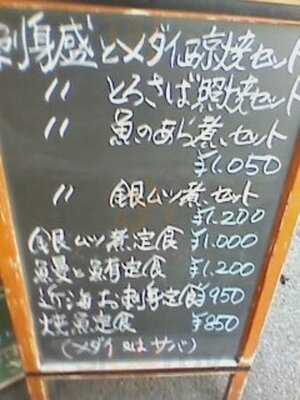 刺身盛とメダイ西京焼セット
〃 とろさば照焼セット
〃 魚のあら煮セット
¥1.050
〃 銀ムツ煮セット
¥1.200
銀ムツ煮定食 ¥1.000
¥1.200
近海お刺身定食 ¥950
焼魚定食 ¥850
(メダイ又はサバ)